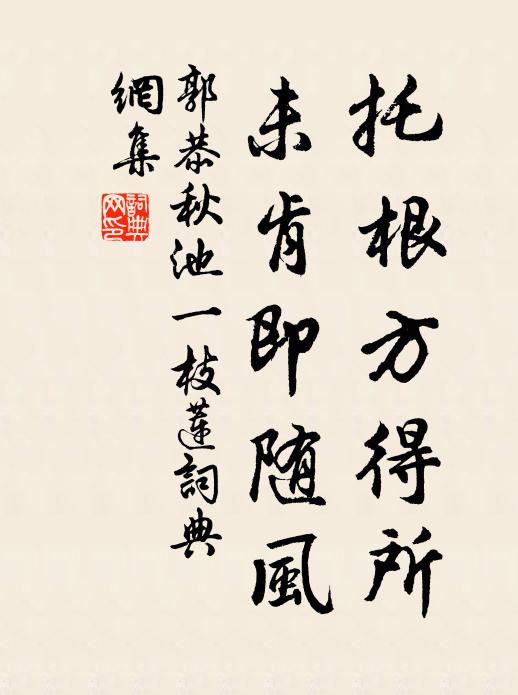 托根方得所
未肯即随風
郭恭秋池一枝蓮詞典
網集
詞典
网印